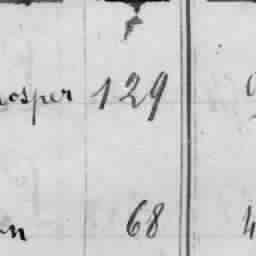 nosper 129
n 68 4